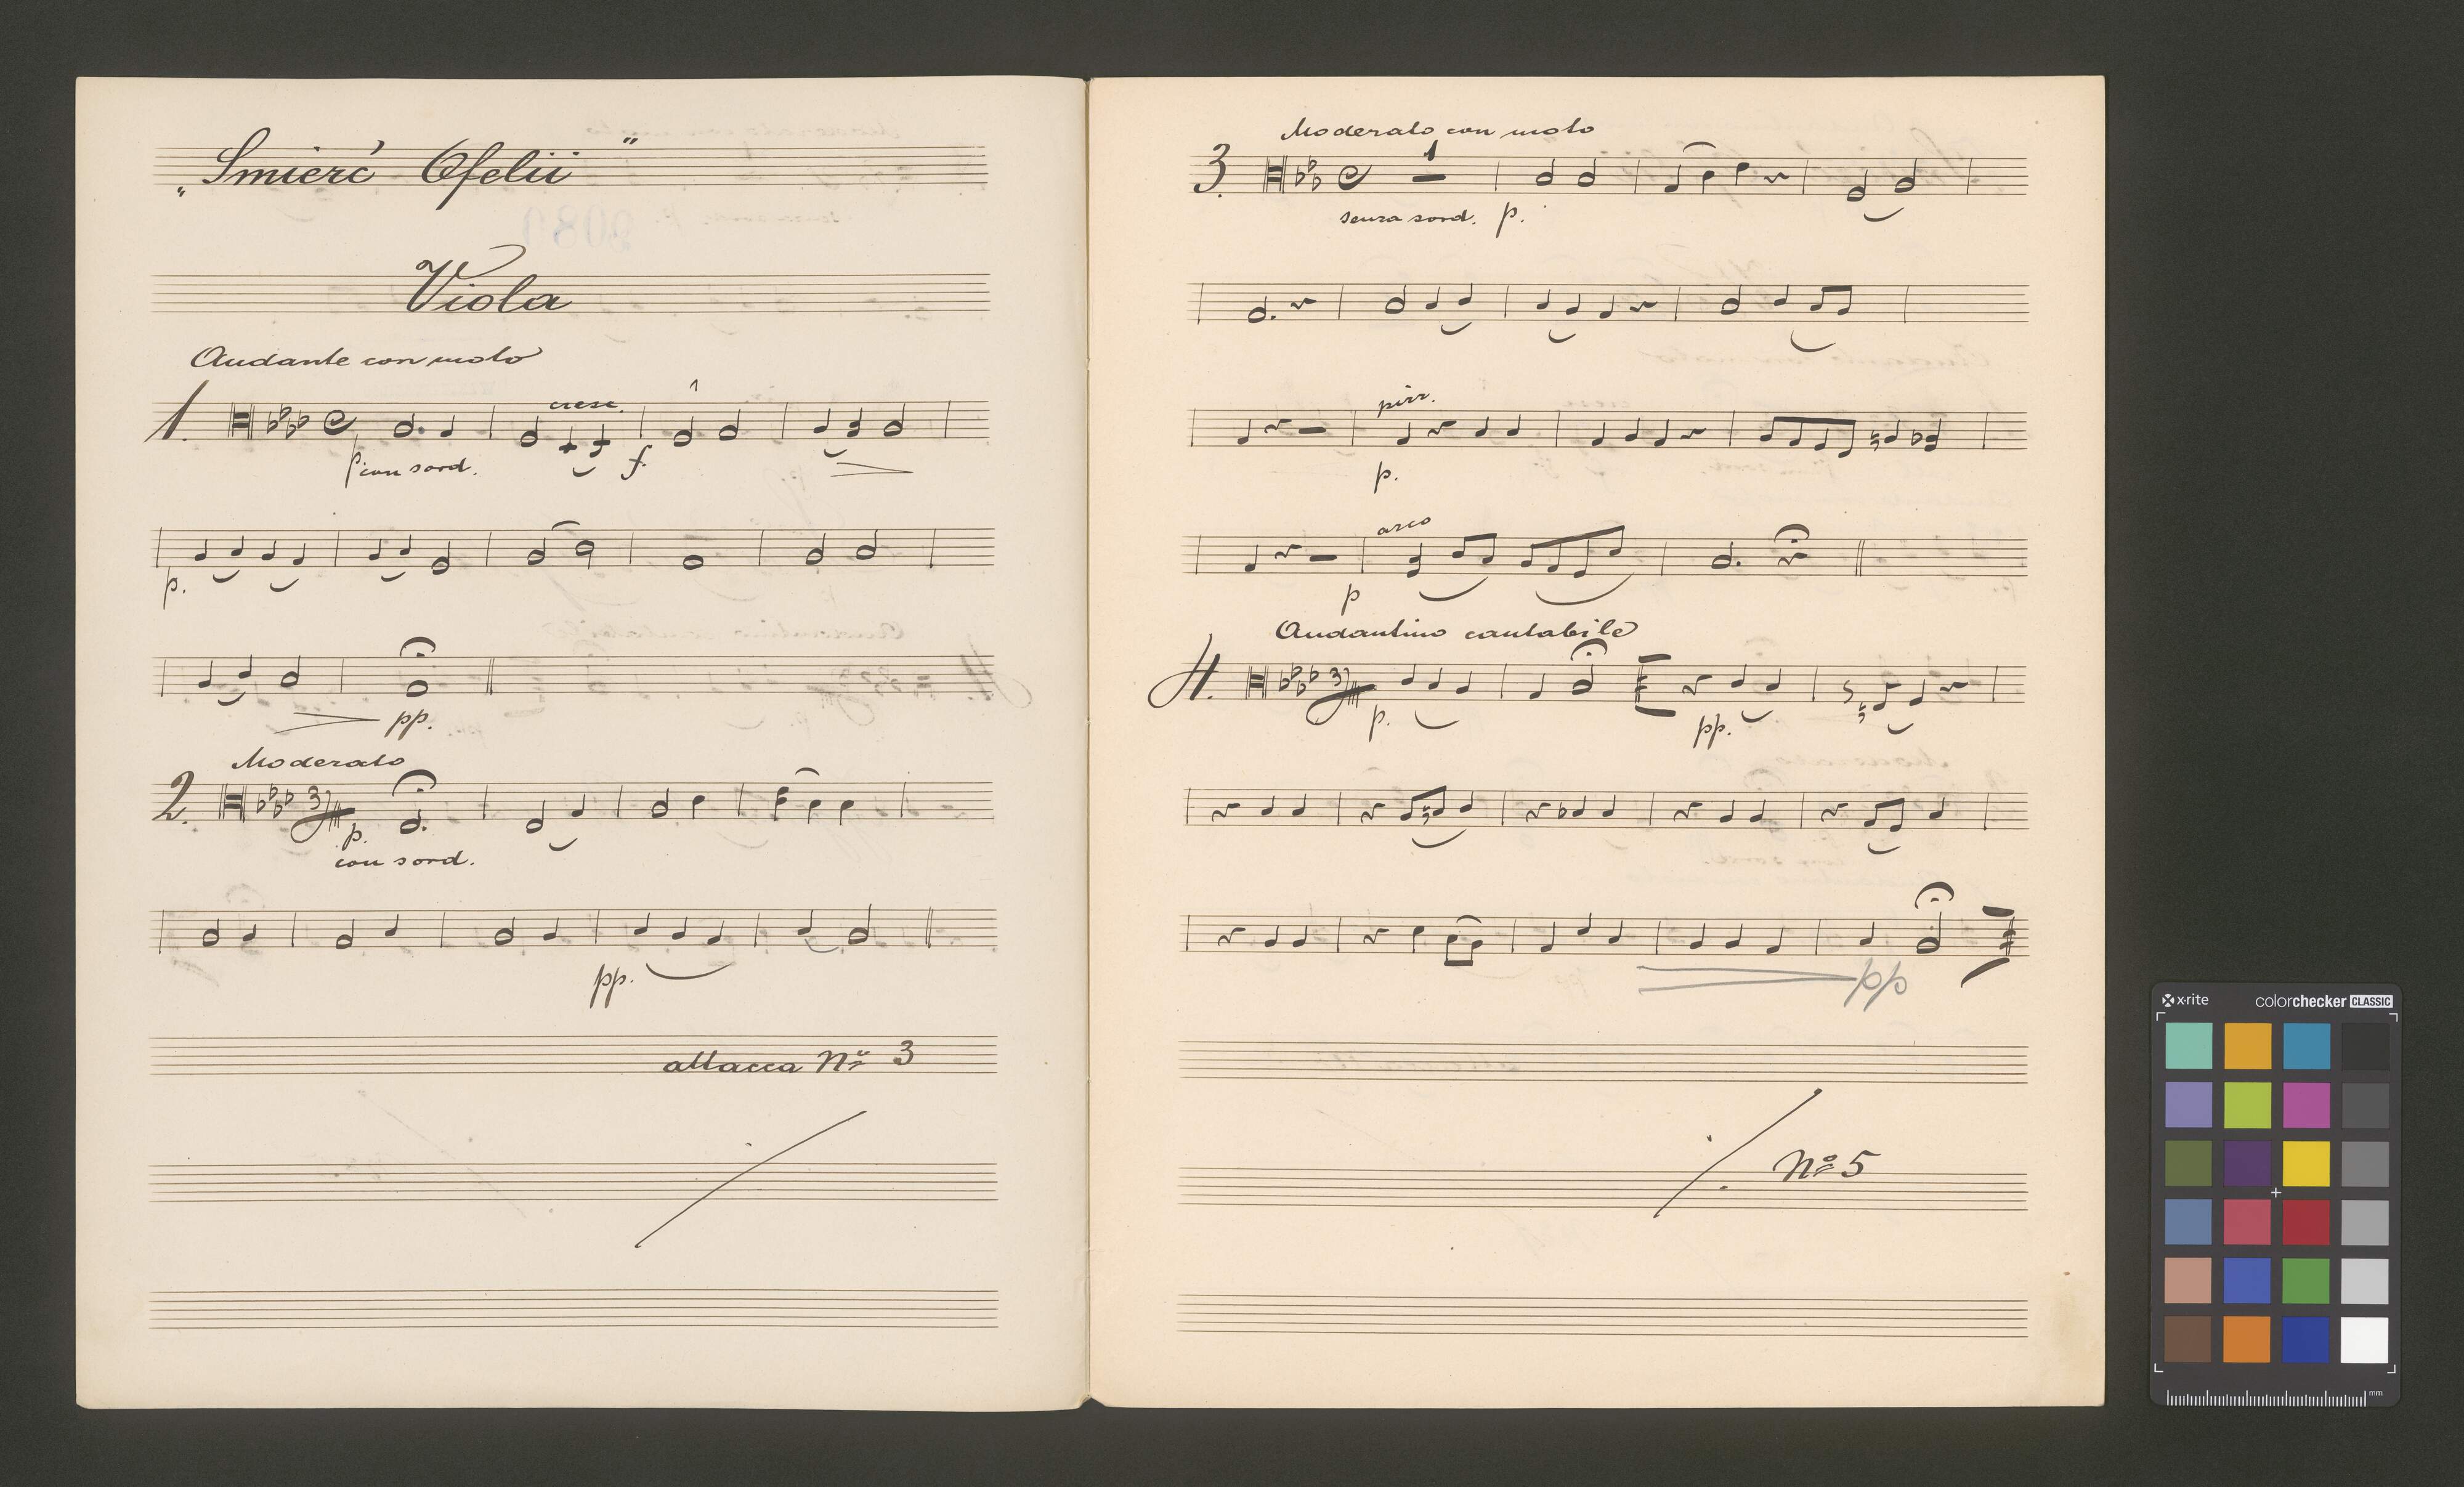 „Śmierć Ofelii"
Viola
Andante con moto
1.
cresc.
p con sord.
f.
p.
pp.
Moderato
2.
3/4
p.
con sord.
pp.
attacca No 3
Moderato con moto
3.
1
senza sord. p.
pizz.
p.
arco
p
Andantino cantabile
4.
3/4
p.
pp.
pp
No 5
x-rite
colorchecker CLASSIC
mm